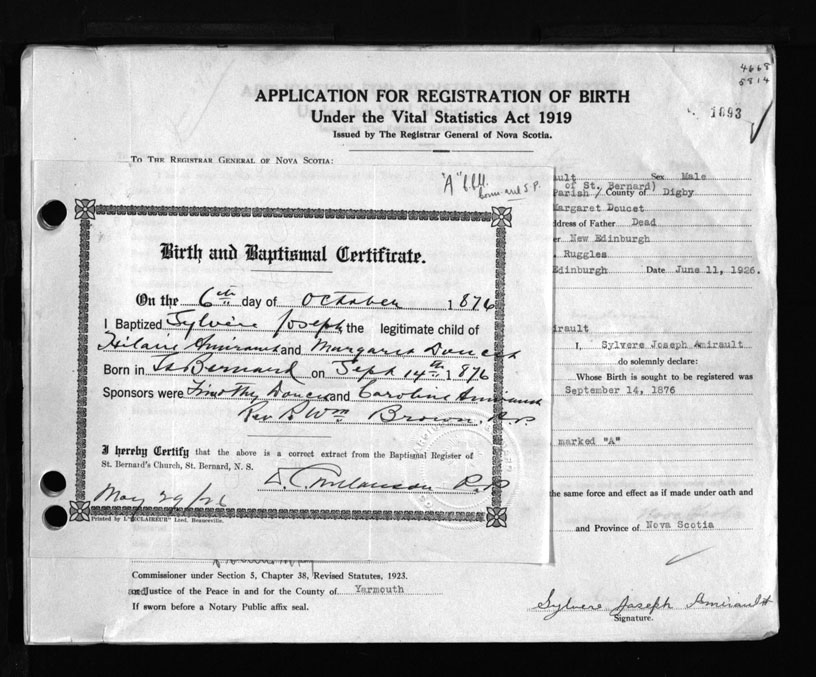 4668
5814
1893
APPLICATION FOR REGISTRATION OF BIRTH
Under the Vital Statistics Act 1919
Issued by The Registrar General of Nova Scotia.
To The Registrar General of Nova Scotia:
"A"
Born and S.P.
Birth and Baptismal Certificate.
On the 6th day of October 1876
I Baptized Sylvère Joseph, the legitimate child of
Hilaire Amirault and Margaret Doucet
Born in St Bernard on Sept 14th 1876
Sponsors were Timothy Doucet and Caroline Amirault
Rev. P. Wm Brown, P.P.
I hereby Certify that the above is a correct extract from the Baptismal Register of
St. Bernard's Church, St. Bernard, N. S.
May 29/26
P.P.
Printed by L"ECLAIREUR" Lted. Beauceville.
ault Sex Male
of St. Bernard)
Parish / County of Digby
Margaret Doucet
ddress of Father Dead
er New Edinburgh
. Ruggles
Edinburgh Date June 11, 1926.
irault
I, Sylvere Joseph Amirault
do solemnly declare:
Whose Birth is sought to be registered was
September 14, 1876
marked "A"
the same force and effect as if made under oath and
and Province of Nova Scotia
Commissioner under Section 5, Chapter 38, Revised Statutes, 1923.
Justice of the Peace in and for the County of Yarmouth
If sworn before a Notary Public affix seal.
Sylvere Joseph Amirault
Signature.